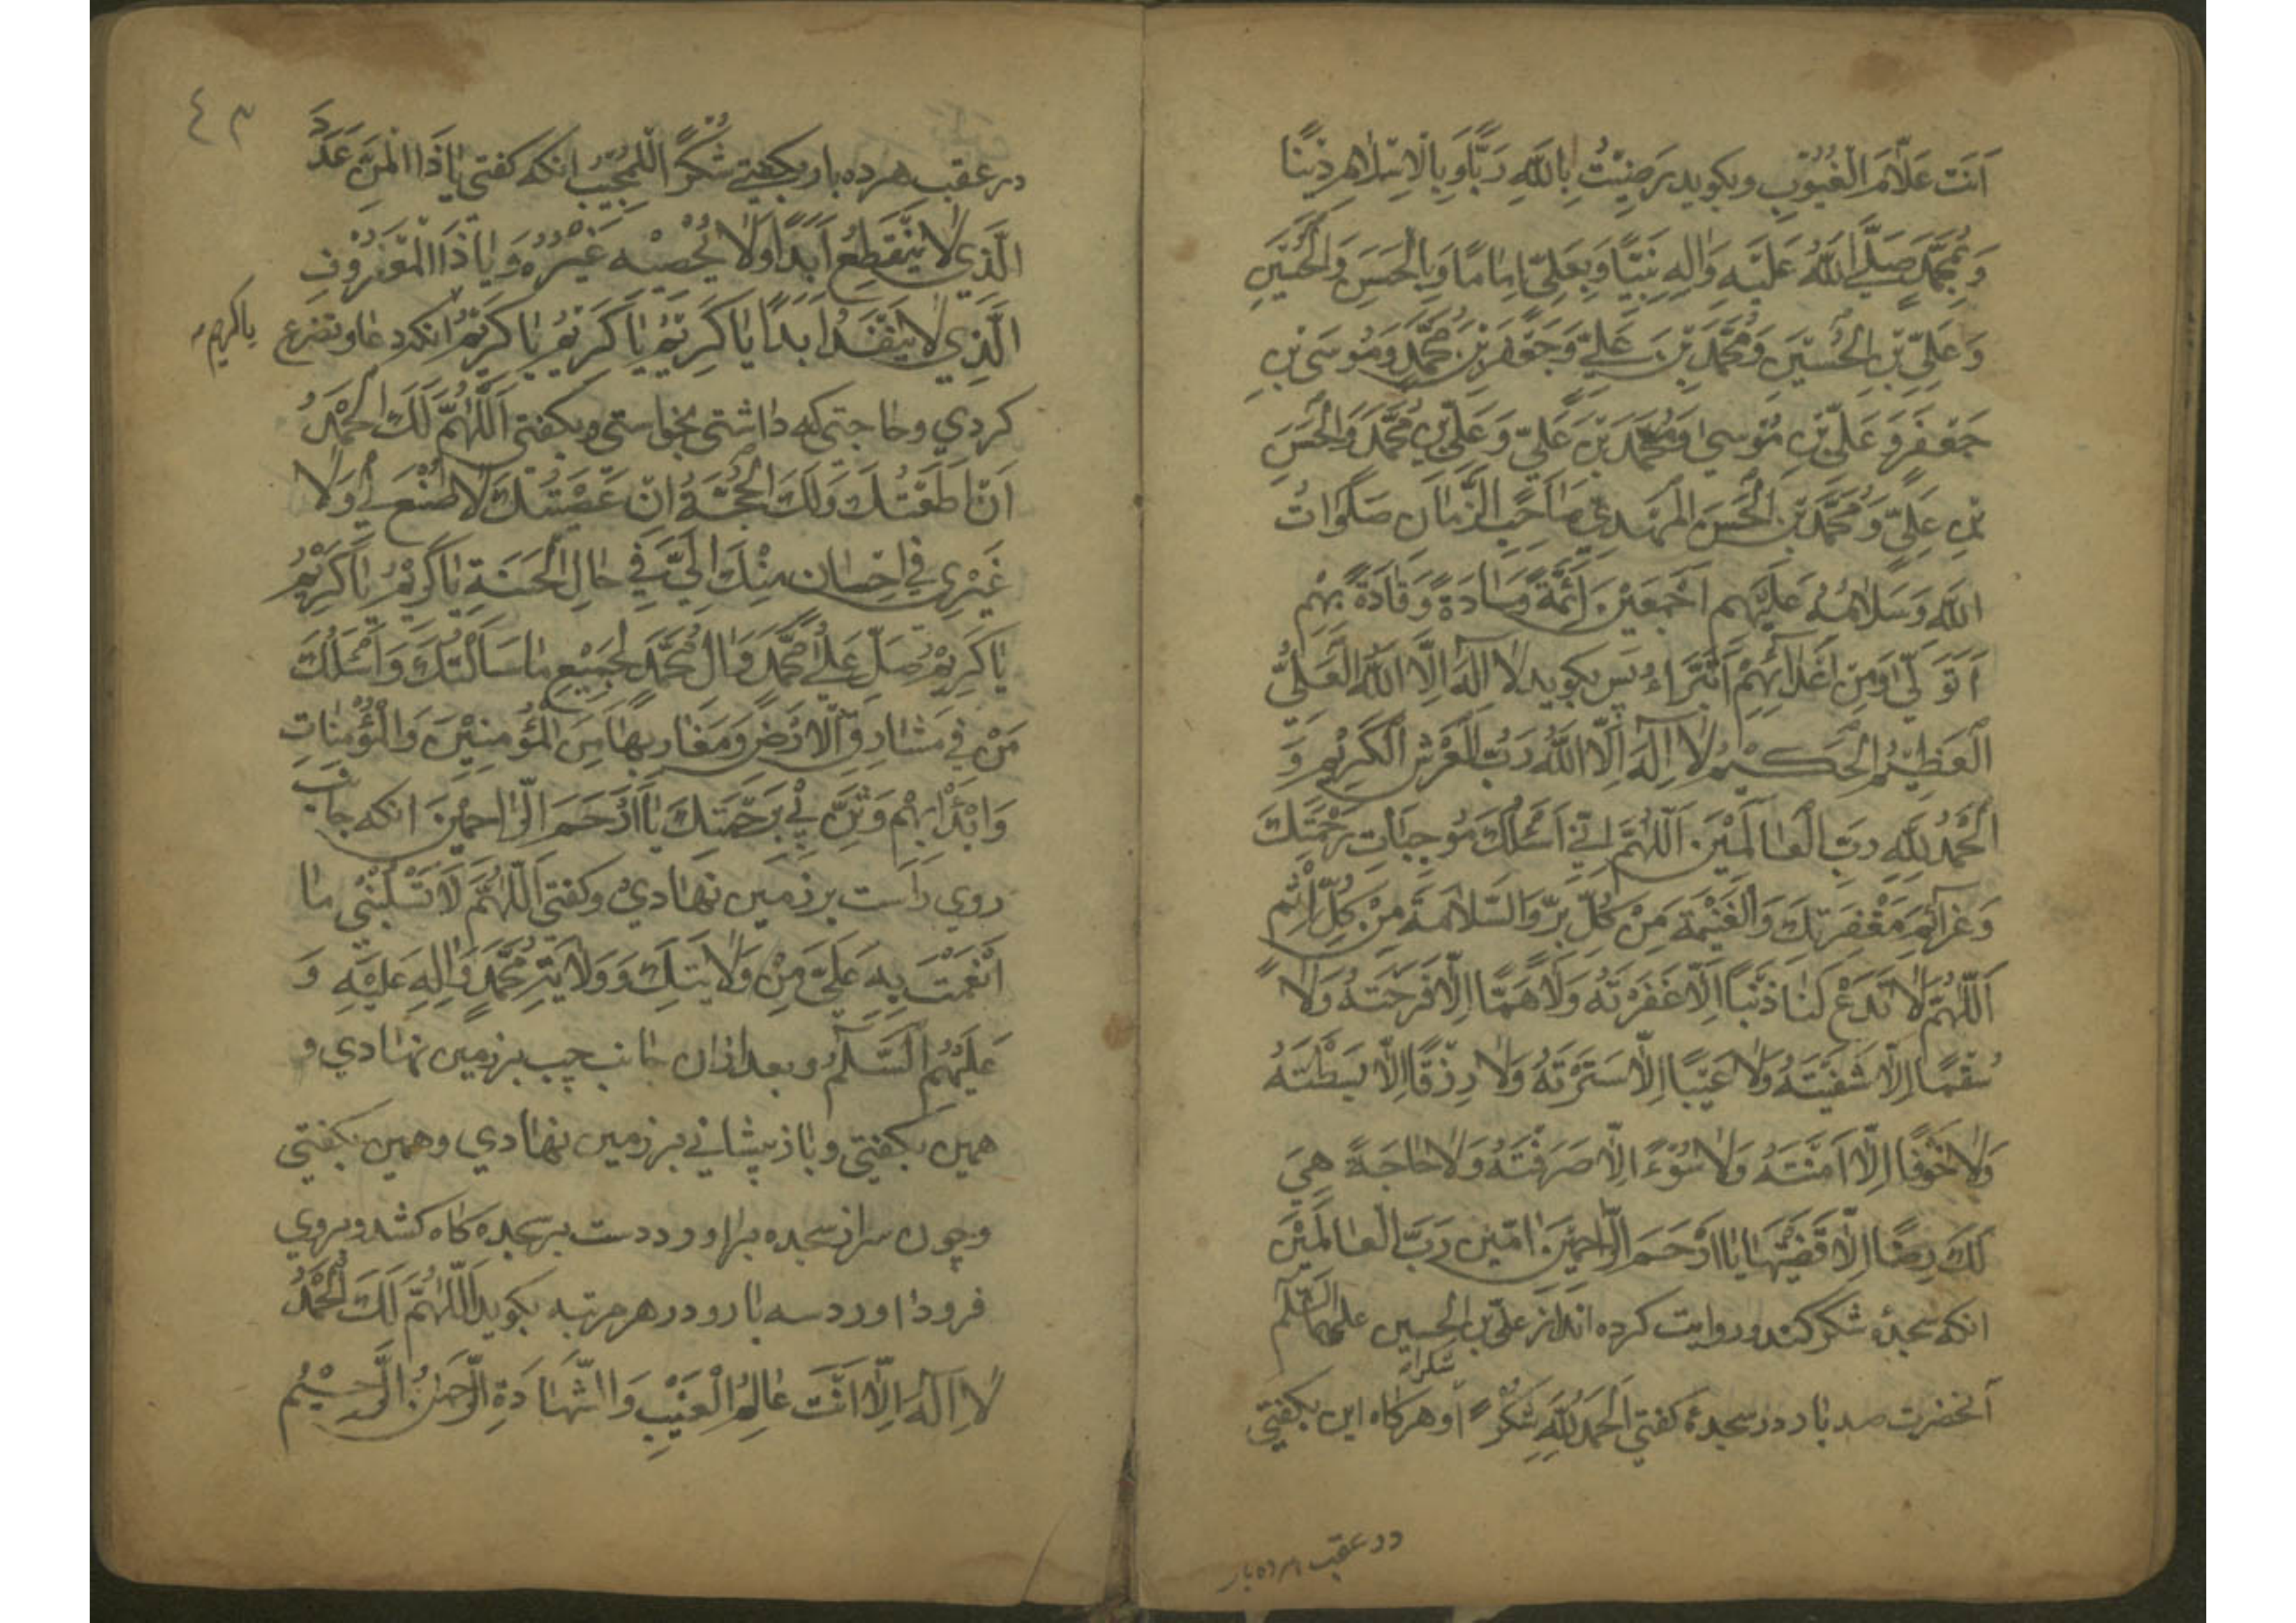 اَنتَ عَلّامُ الْغُیُوبِ وبکوید رَضِیْتُ بِاللّٰهِ رَبًّا وَبِالْاِسْلامِ دِیْنًا
وَبِمُحَمَّدٍ صَلَّی اللّٰهُ عَلَیْهِ وَاٰلِهِ نَبِیًّا وَبِعَلِیٍّ اِمَامًا وَبِالْحَسَنِ وَالْحُسَیْنِ
وَعَلِیِّ بْنِ الْحُسَیْنِ وَمُحَمَّدِ بْنِ عَلِیٍّ وَجَعْفَرِ بْنِ مُحَمَّدٍ وَمُوسَی بْنِ
جَعْفَرٍ وَعَلِیِّ بْنِ مُوْسیٰ وَمُحَمَّدِ بْنِ عَلِیٍّ وَعَلِیِّ بْنِ مُحَمَّدٍ وَالْحَسَنِ
بْنِ عَلِیٍّ وَمُحَمَّدِ بْنِ الْحَسَنِ الْمَهْدِیِّ صَاحِبِ الزَّمَانِ صَلَوَاتُ
اللّٰهِ وَسَلَامُهُ عَلَیْهِم اَجْمَعِیْنَ اَئِمَّةً وَسَادَةً وَقَادَةً بِهِمْ
اَتَوَلّیٰ وَمِنْ اَعْدَآئِهِمْ اَتَبَرَّاءُ پس بکوید لٰا اِلٰهَ اِلَّا اللّٰهُ الْعَلِیُّ
الْعَظِیْمُ الْحَکِیْمُ لٰا اِلٰهَ اِلَّا اللّٰهُ رَبُّ الْعَرْشِ الْکَرِیْمِ وَ
الْحَمْدُ لِلّٰهِ رَبِّ الْعَالَمِیْنَ اَللّٰهُمَّ اِنِّی اَسْئَلُکَ مُوجِبَاتِ رَحْمَتِکَ
وَعَزآئِمَ مَغْفِرَتِکَ وَالْغَنِیْمَةَ مِنْ کُلِّ بِرٍّ وَالسَّلَامَةَ مِنْ کُلِّ اِثْمٍ
اَللّٰهُمَّ لٰا تَدَعْ لَنَا ذَنْبًا اِلَّا غَفَرْتَهُ وَلٰا هَمًّا اِلَّا فَرَّجْتَهُ وَلٰا
سُقْمًا اِلَّا شَفَیْتَهُ وَلٰا عَیْبًا اِلَّا سَتَرْتَهُ وَلٰا رِزْقًا اِلَّا بَسَطْتَهُ
وَلٰا خَوْفًا اِلَّا اٰمَنْتَهُ وَلٰا سُوْءً اِلَّا صَرَفْتَهُ وَلٰا حَاجَةً هِیَ
لَکَ رِضًا اِلَّا قَضَیْتَهَا یَا اَرْحَمَ الرَّاحِمِیْنَ اٰمِّیْنَ رَبَّ الْعَالَمِیْنَ
انکه سجدهٔ شکر کند وروایت کرده اند از علی بن الحسین علیهما السّلم
آنحضرت صد بار در سجدهٔ کفتی الْحَمْدُ لِلّٰهِ شُکْرًا وهرکاه این بکفتی
شکرا
در عقب هر ده بار
٤٣
در عقب هر ده بار بکفتی شُکْرًا لِلْمُجِیْبِ انکه کفتی یَا ذَا الْمَنِّ عَدَدَ
الَّذِی لٰا یَنْقَطِعُ اَبَدًا وَلٰا یُحْصِیْهِ غَیْرُهُ وَیَا ذَا الْمَعْرُوْفِ
الَّذِی لٰا یَنْفَدُ اَبَدًا یَا کَرِیْمُ یَا کَرِیْمُ یَا کَرِیْمُ انکه دعا وتضرع
یا کریم
کردی وحاجتی که داشتی بخواستی وبکفتی اَللّٰهُمَّ لَکَ الْحَمْدُ
اِنْ اَطَعْتُکَ وَلَکَ الْحُجَّةُ اِنْ عَصَیْتُکَ لٰا صُنْعَ لِی وَلٰا
غَیْرِی فِی اِحْسَانٍ مِنْکَ اِلَیَّ فِی حَالِ الْحَسَنَةِ یَا کَرِیْمُ یَا کَرِیْمُ
یَا کَرِیْمُ صَلِّ عَلیٰ مُحَمَّدٍ وَاٰلِ مُحَمَّدٍ بِجَمِیْعِ مَا سَاَلْتُکَ وَاَسْئَلُکَ
مَنْ فِی مَشَارِقِ الْاَرْضِ وَمَغَارِبِهَا مِنَ الْمُؤْمِنِیْنَ وَالْمُؤْمِنَاتِ
وَابْدَأْ بِهِمْ وَثَنِّ بِی بِرَحْمَتِکَ یَا اَرْحَمَ الرَّاحِمِیْنَ انکه جانب
روی راست بر زمین نهادی وکفتی اَللّٰهُمَّ لَا تَسْلُبْنِی مَا
اَنْعَمْتَ بِهِ عَلَیَّ مِنْ وَلٰایَتِکَ وَوَلٰایَةِ مُحَمَّدٍ وَاٰلِهِ عَلَیْهِ وَ
عَلَیْهِمُ السَّلَمُ وبعد ازان جانب چپ بر زمین نهادی و
همین بکفتی وباز پیشانی بر زمین نهادی وهمین بکفتی
وچون سر از سجده براورد دست بر سجده کاه کشد وبروی
فرود اورد سه بار ودر هر مرتبه بکوید اَللّٰهُمَّ لَکَ الْحَمْدُ
لٰا اِلٰهَ اِلَّا اَنْتَ عَالِمُ الْغَیْبِ وَالشَّهَادَةِ الرَّحْمٰنُ الرَّحِیْمُ